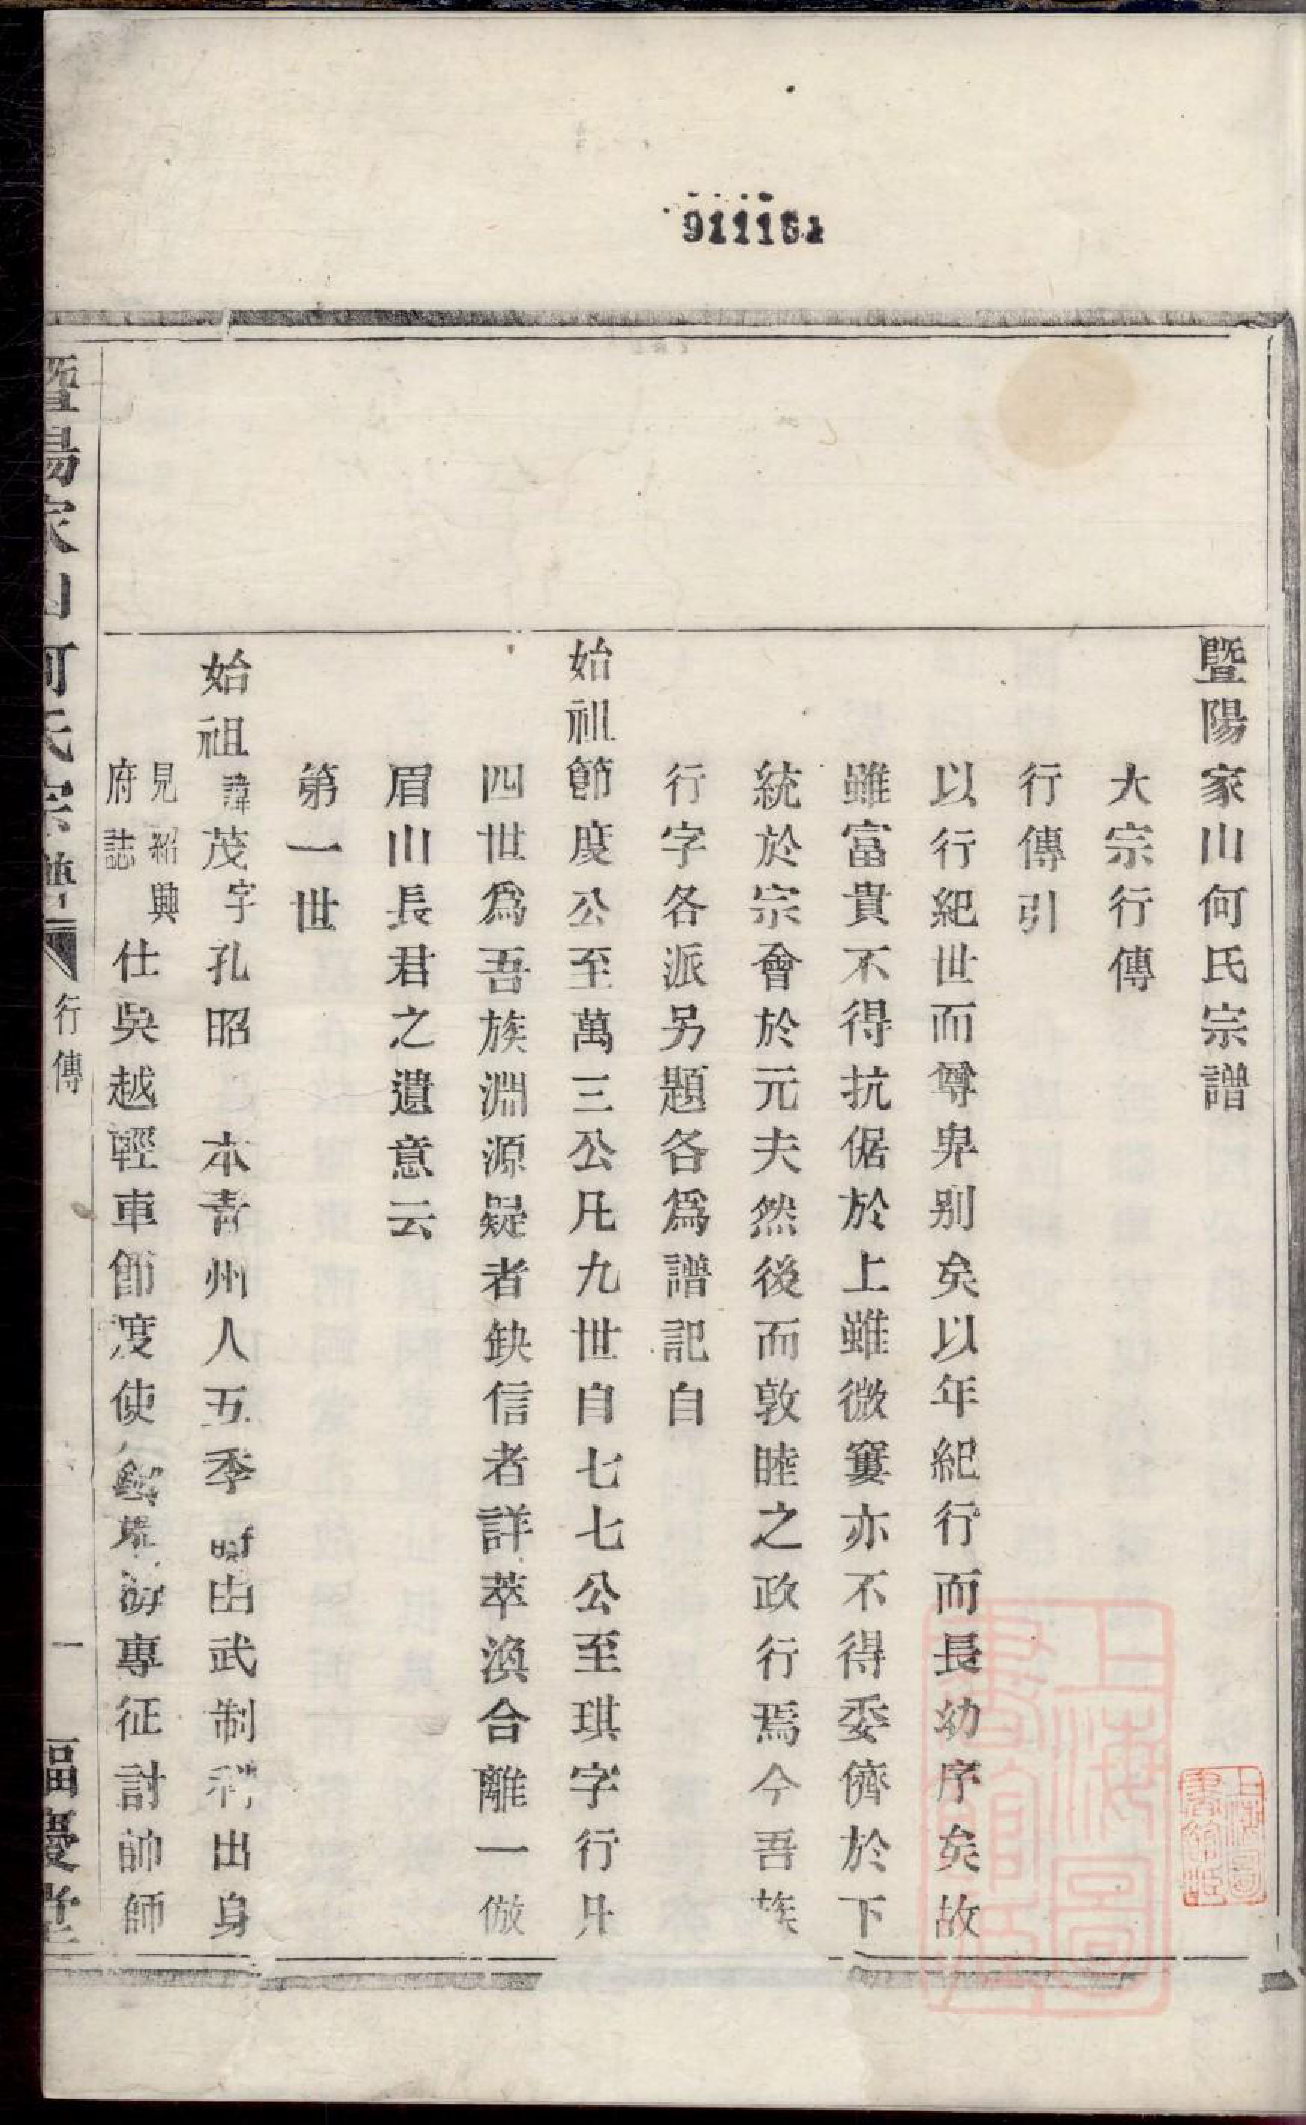 911151
暨陽家山何氏宗譜
大宗行傳
行傳引
以行紀世而尊卑别矣以年紀行而長幼序矣故
雖富貴不得抗倨於上雖微窶亦不得委儕於下
統於宗會於元夫然後而敦睦之政行焉今吾族
行字各派另題各爲譜記自
始祖節度公至萬三公凡九世自七七公至琪字行凡
四世爲吾族淵源疑者缺信者詳萃渙合離一倣
眉山長君之遺意云
第一世
始祖諱茂字孔昭 本青州人五季時由武制科出身
見紹興
府誌
仕吳越輕車節度使鎮 海專征討帥師
暨陽家山何氏宗譜 行傳 一 福慶堂
上海圖書館藏
上海圖書館藏